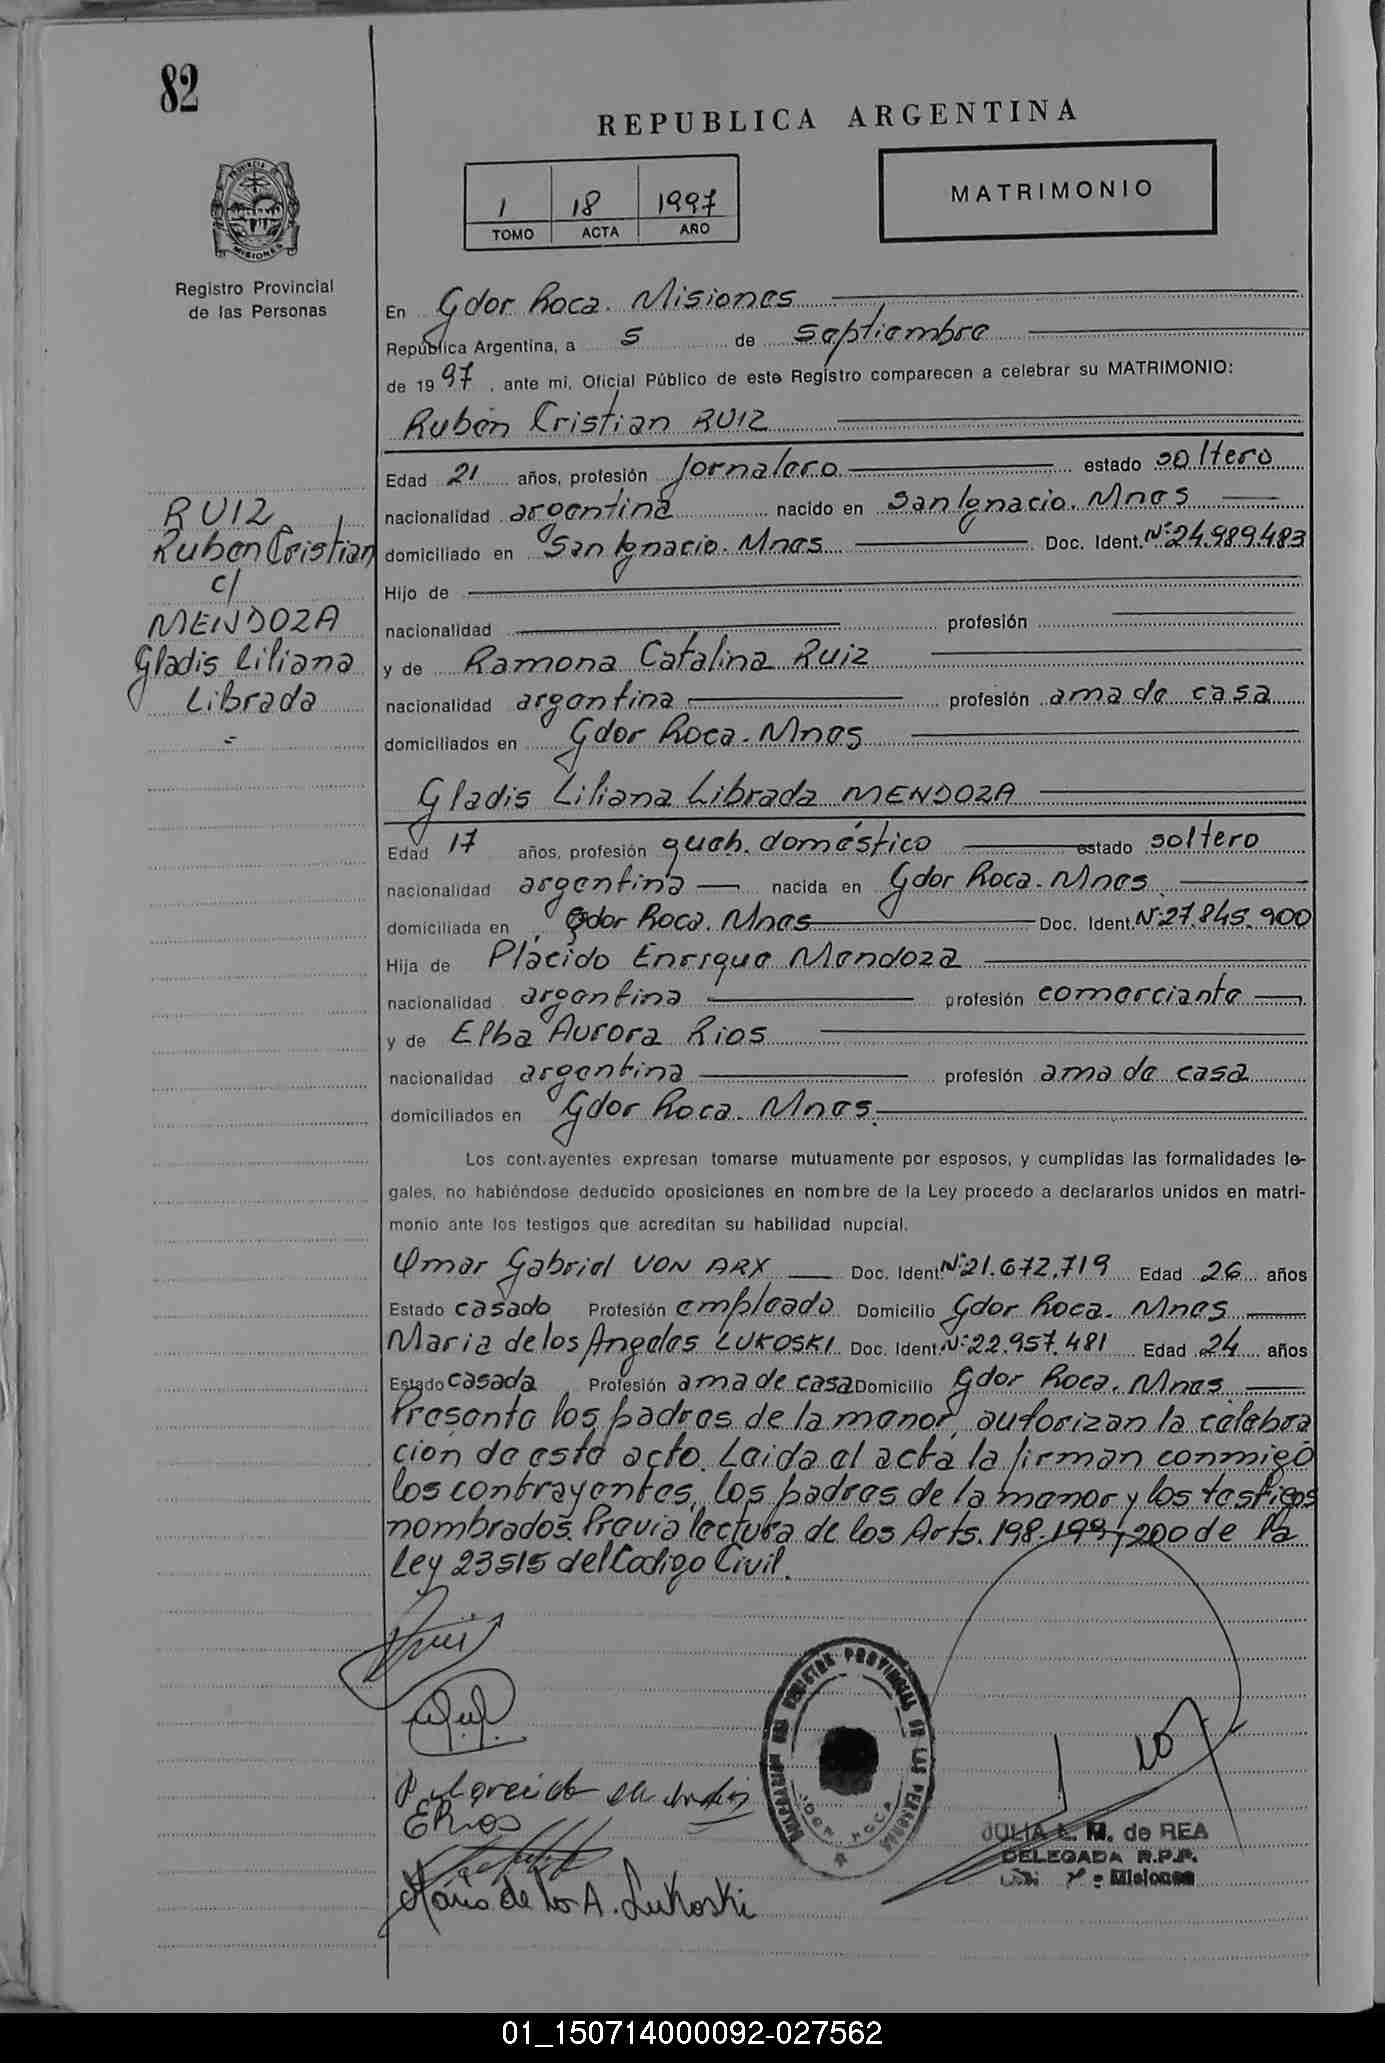 82
REPUBLICA ARGENTINA
1 18 1997
TOMO ACTA AÑO
MATRIMONIO
PROVINCIA DE
MISIONES
Registro Provincial
de las Personas
En Gdor Roca. Misiones
República Argentina, a 5 de septiembre
de 1997, ante mi, Oficial Público de este Registro comparecen a celebrar su MATRIMONIO:
Ruben Cristian RUIZ
Edad 21 años, profesión Jornalero estado soltero
nacionalidad argentina nacido en San Ignacio. Mnes
domiciliado en San Ignacio. Mnes Doc. Ident. Nº 24.989.483
Hijo de
nacionalidad profesión
y de Ramona Catalina Ruiz
nacionalidad argentina profesión ama de casa
domiciliados en Gdor Roca. Mnes
RUIZ
Ruben Cristian
c/
MENDOZA
Gladis Liliana
Librada
Gladis Liliana Librada MENDOZA
Edad 17 años, profesión queh. doméstico estado soltero
nacionalidad argentina nacida en Gdor Roca. Mnes
domiciliada en Gdor Roca. Mnes Doc. Ident. Nº 27.845.900
Hija de Plácido Enrique Mendoza
nacionalidad argentina profesión comerciante
y de Elba Aurora Rios
nacionalidad argentina profesión ama de casa
domiciliados en Gdor Roca. Mnes.
Los contrayentes expresan tomarse mutuamente por esposos, y cumplidas las formalidades le-
gales, no habiéndose deducido oposiciones en nombre de la Ley procedo a declararlos unidos en matri-
monio ante los testigos que acreditan su habilidad nupcial.
Omar Gabriel VON ARX Doc. Ident. Nº 21.672.719 Edad 26 años
Estado casado Profesión empleado Domicilio Gdor Roca. Mnes
Maria de los Angeles LUKOSKI Doc. Ident. Nº 22.957.481 Edad 24 años
Estado casada Profesión ama de casa Domicilio Gdor Roca. Mnes
Presente los padres de la menor, autorizan la celebra
cion de este acto. Leida el acta la firman conmigo
los contrayentes, los padres de la menor y los testigos
nombrados. Previa lectura de los Arts. 198-199 y 200 de la
Ley 23515 del Codigo Civil.
Ruiz
ERios
Maria de los A. Lukoski
REGISTRO PROVINCIAL DE LAS PERSONAS
GDOR. ROCA
JULIA E. M. de REA
DELEGADA R.P.P.
Misiones
01_150714000092-027562